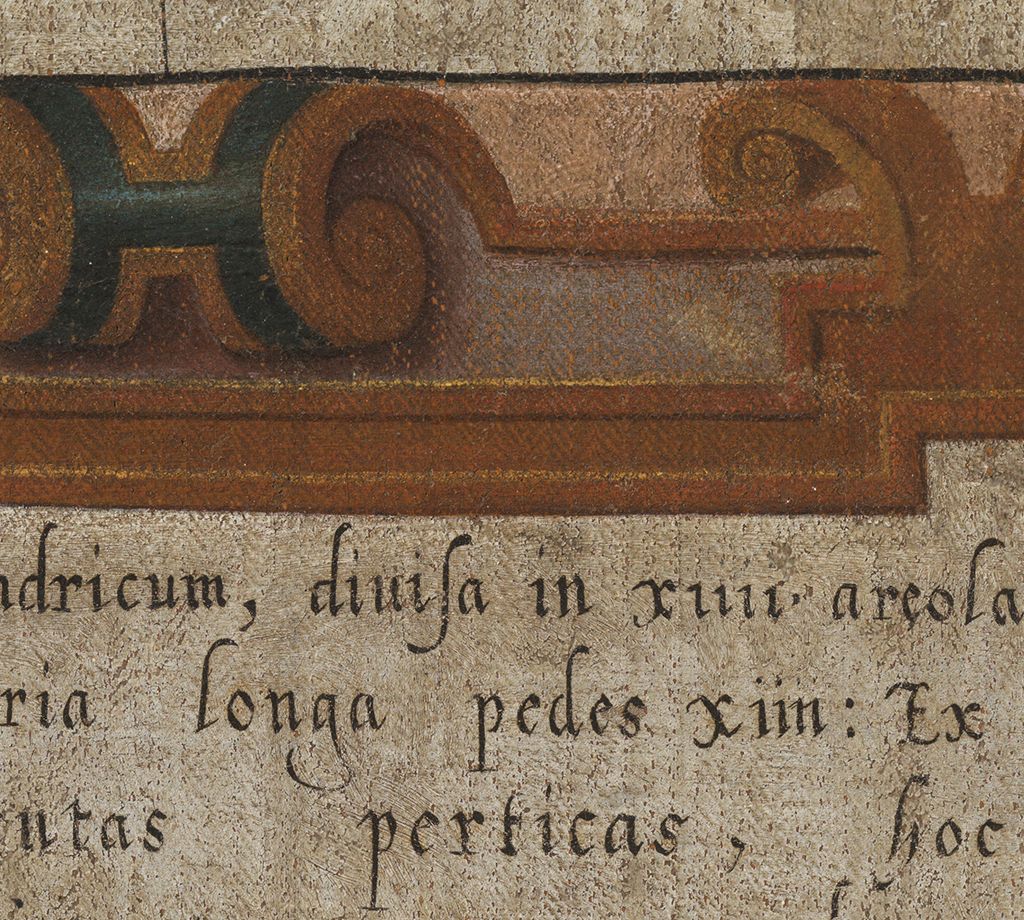 ndricum, diuiſa in xiiii. areola
ria longa pedes xiiii: Ex
utas perticas, hoc